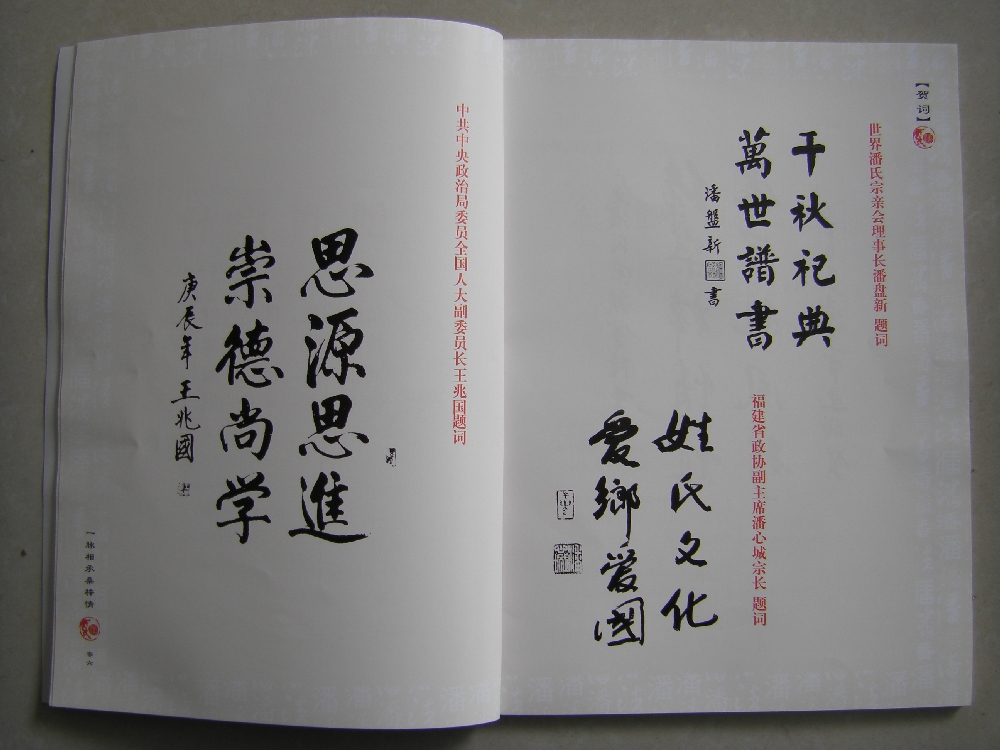 【贺词】
世界潘氏宗亲会理事长潘盘新 题词
千秋祀典
萬世譜書
潘盤新
書
福建省政协副主席潘心城宗长 题词
姓氏文化
爱鄉爱國
中共中央政治局委员全国人大副委员长王兆国题词
思源思進
崇德尚学
庚辰年 王兆國
一脉相承桑梓情
卷六